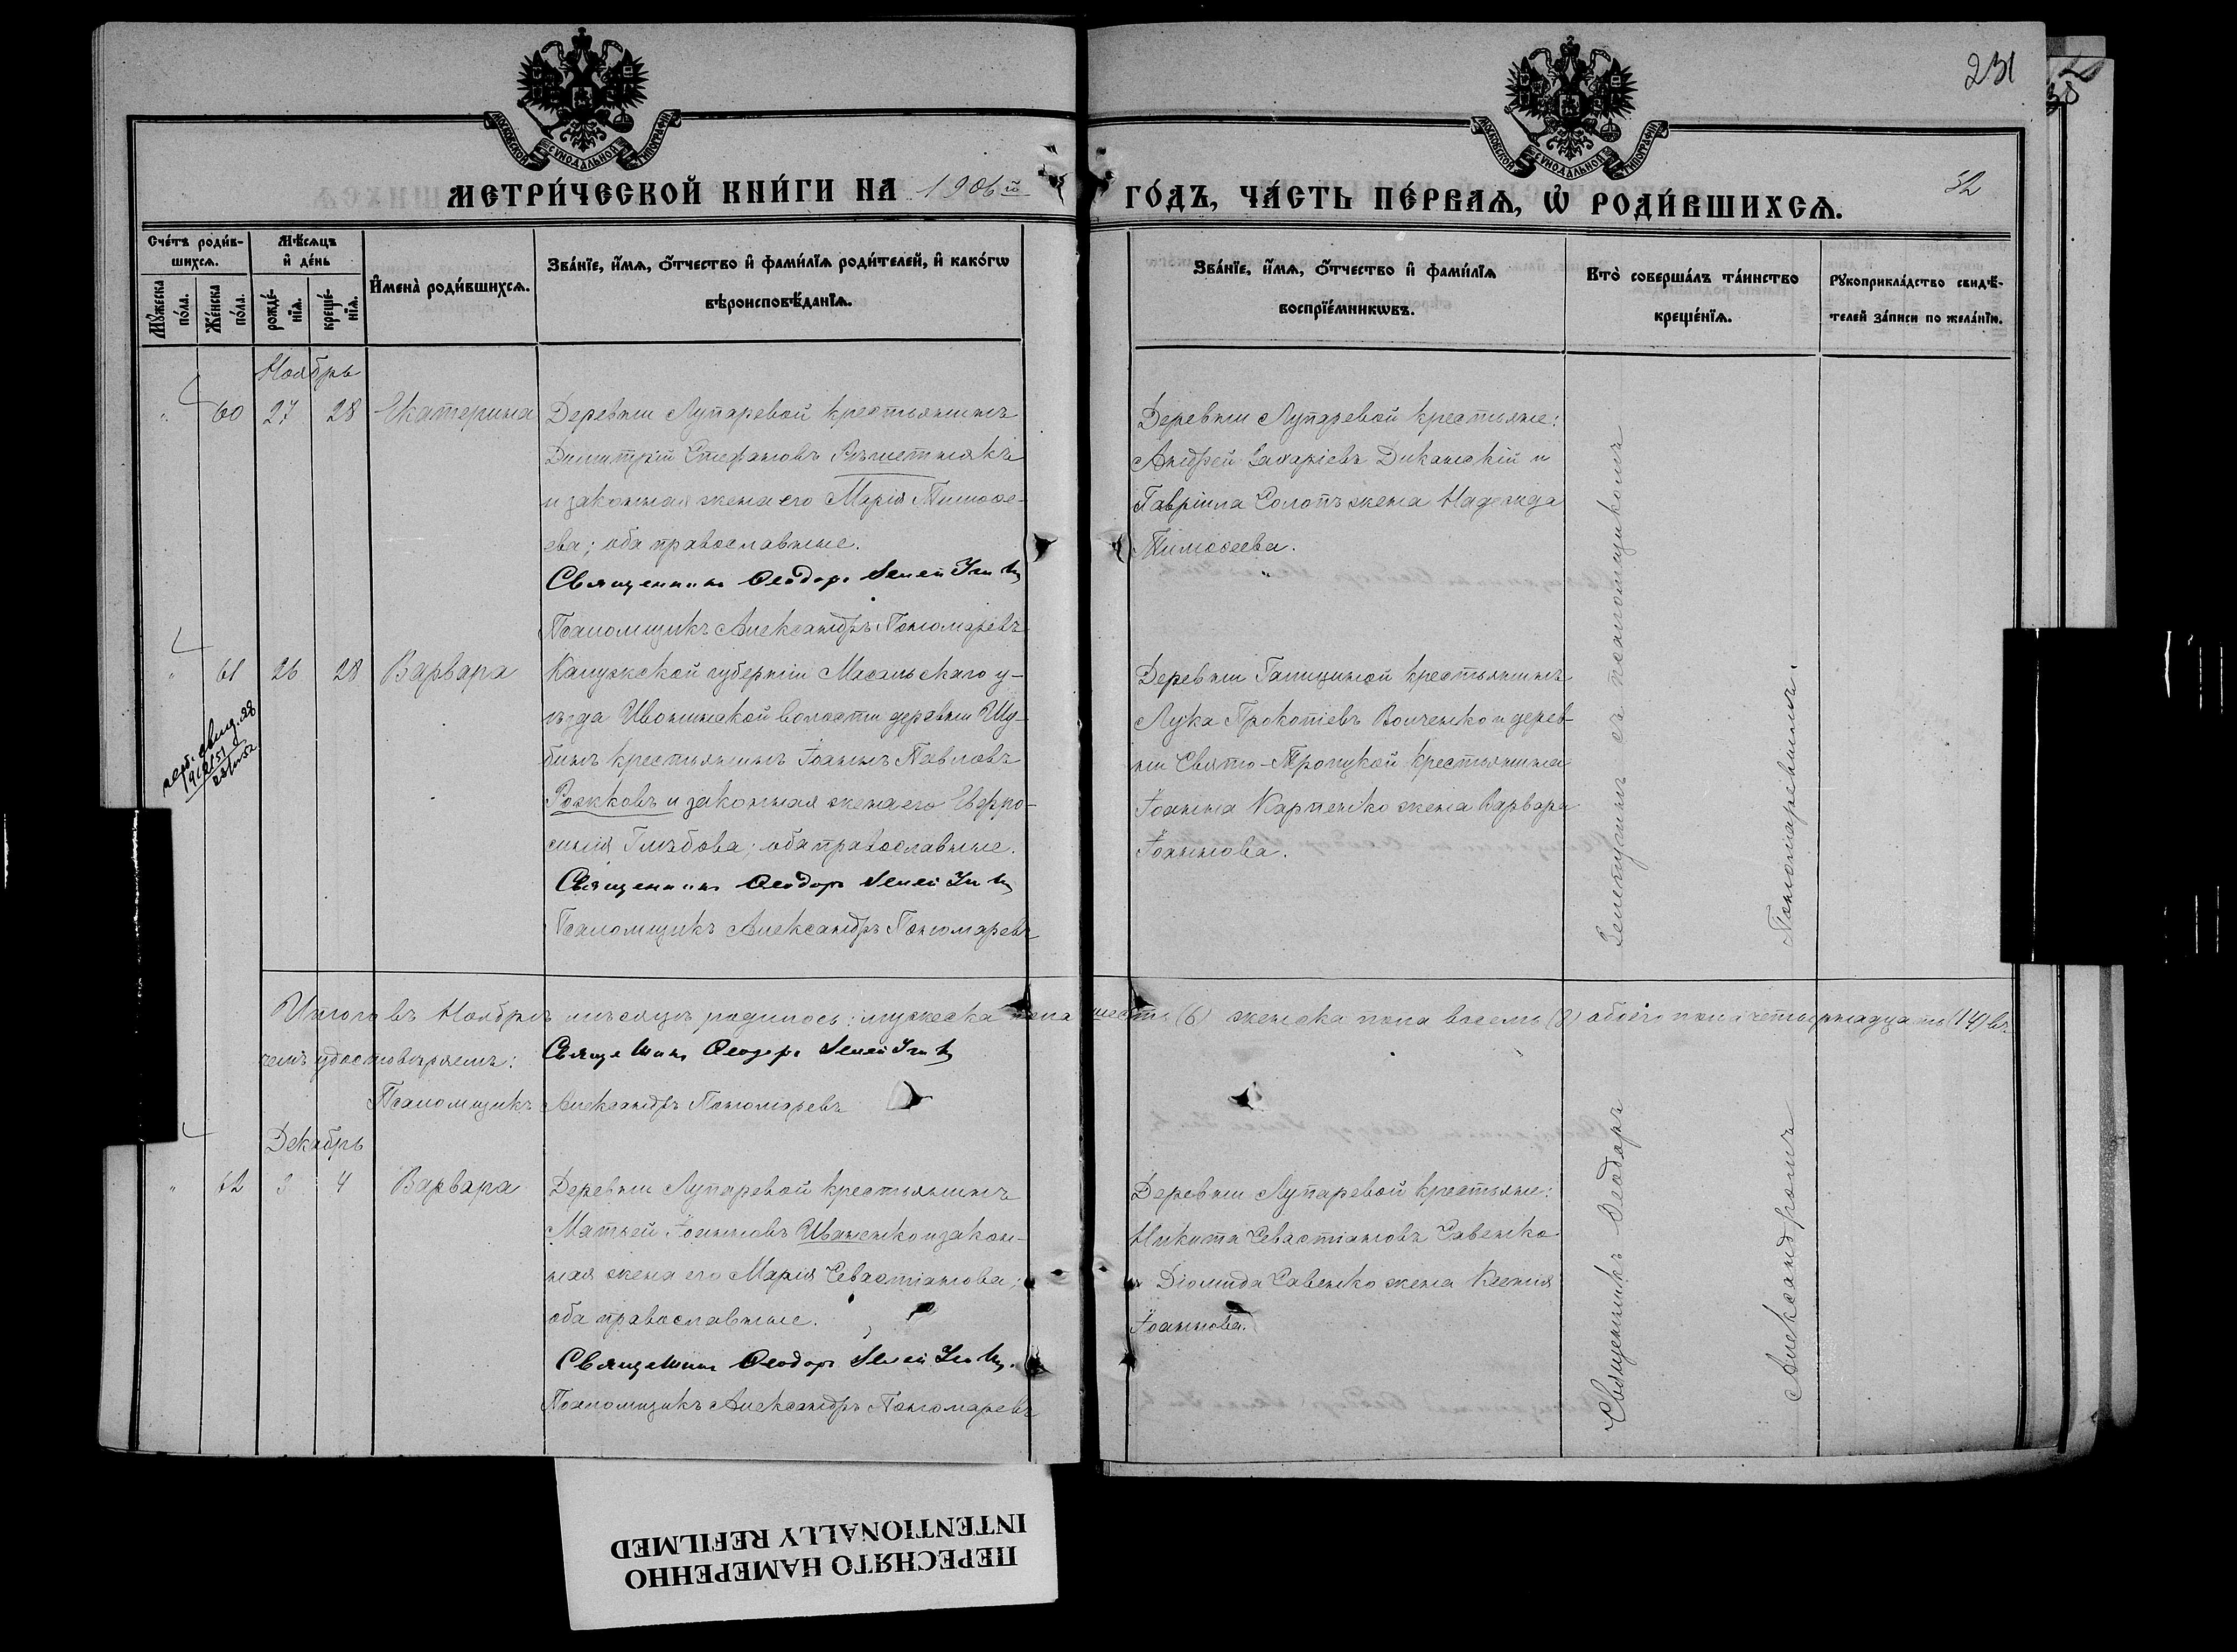 231
32
МОСКОВСКОЙ СѴНОДАЛЬНОЙ ТИПОГРАФІИ
МОСКОВСКОЙ СѴНОДАЛЬНОЙ ТИПОГРАФІИ
МЕТРИ́ЧЕСКОЙ КНИ́ГИ НА 1906й
ГО́ДЪ, ЧА́СТЬ ПЕ́РВАѦ, Ѡ҆ РОДИ́ВШИХСѦ.
Сче́тъ роди́в-
шихсѧ.
Мꙋ́жеска по́ла.
Же́нска по́ла.
Мѣ́сѧцъ
и҆ де́нь
рожде́-
нїѧ.
креще́-
нїѧ.
И҆мена̀ роди́вшихсѧ.
Зва́нїе, и҆́мѧ, ѻ҆́тчество и҆ фами́лїѧ роди́телей, и҆ како́гѡ
вѣроисповѣ́данїѧ.
Зва́нїе, и҆́мѧ, ѻ҆́тчество и҆ фами́лїѧ
воспрїе́мникѡвъ.
Кто̀ соверша́лъ та́инство
креще́нїѧ.
Рꙋкоприкла́дство свидѣ́-
телей за́писи по жела́нїю.
Ноябрь
" 60 27 28 Екатерина
Деревни Лупаревой крестьянинъ
Димитрій Стефановъ Рѣшетнякъ
и законная жена его Марія Тимоѳе-
ева; оба православные.
Священникъ Ѳеодоръ
Псаломщикъ Александръ Пономаревъ
Деревни Лупаревой крестьяне:
Андрей Захаріевъ Диканскій и
Гавріила Солопъ жена Надежда
Тимоѳеева.
" 61 26 28 Варвара
Калужской губерніи Масальскаго у-
ѣзда Ивонинской волости деревни Шу-
бинъ крестьянинъ Іоаннъ Павловъ
Рожковъ и законная жена его Евфро-
синія Глѣбова; оба православные.
Священникъ Ѳеодоръ
Псаломщикъ Александръ Пономаревъ
Деревни Галициной крестьянинъ
Лука Прокопіевъ Волченко и дерев-
ни Свято-Троицкой крестьянина
Іоанна Карпенко жена Варвара
Іоаннова.
Итого въ Ноябрѣ мѣсяцѣ родилось: мужеска пола шесть (6) женска пола восемь (8) обоего пола четырнадцать (14) въ
чемъ удостовѣряемъ: Священникъ Ѳеодоръ
Псаломщикъ Александръ Пономаревъ
Декабрь
" 62 3 4 Варвара
Деревни Лупаревой крестьянинъ
Матѳей Іоанновъ Иваненко и закон-
ная жена его Марія Севастіанова;
оба православные.
Священникъ Ѳеодоръ
Псаломщикъ Александръ Пономаревъ
Деревни Лупаревой крестьяне:
Никита Севастіановъ Савенко
и Діомида Савенко жена Ксенія
Іоаннова.
Священникъ Ѳеодоръ съ псаломщикомъ
Александромъ Пономаревымъ.
ПЕРЕСНЯТО НАМЕРЕННО
INTENTIONALLY REFILMED